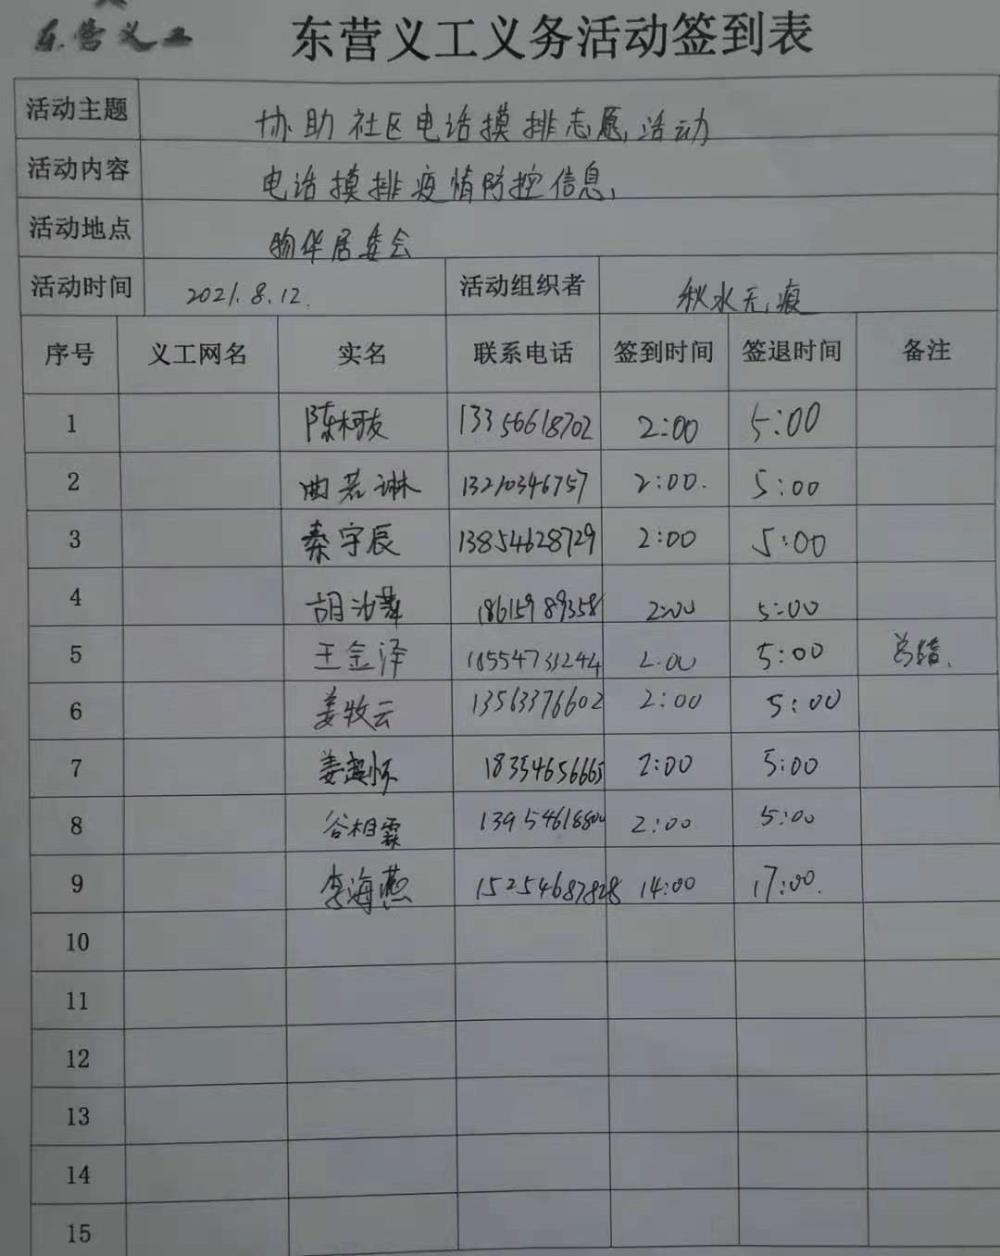 东营义工 东营义工义务活动签到表
活动主题 协助社区电话摸排志愿活动
活动内容 电话摸排疫情防控信息
活动地点 物华居委会
活动时间 2021.8.12. 活动组织者 秋水无痕
序号 义工网名 实名 联系电话 签到时间 签退时间 备注
1 陈柯友 13356618702 2:00 5:00
2 曲若琳 13210346757 2:00. 5:00
3 秦宇辰 13854628729 2:00 5:00
4 18615989358 2:00 5:00
5 王金泽 18554731244 2:00 5:00 总结.
6 姜牧云 13563376602 2:00 5:00
7 18354656665 2:00 5:00
8 谷相霖 2:00 5:00
9 李海燕 15254687828 14:00 17:00.
10
11
12
13
14
15